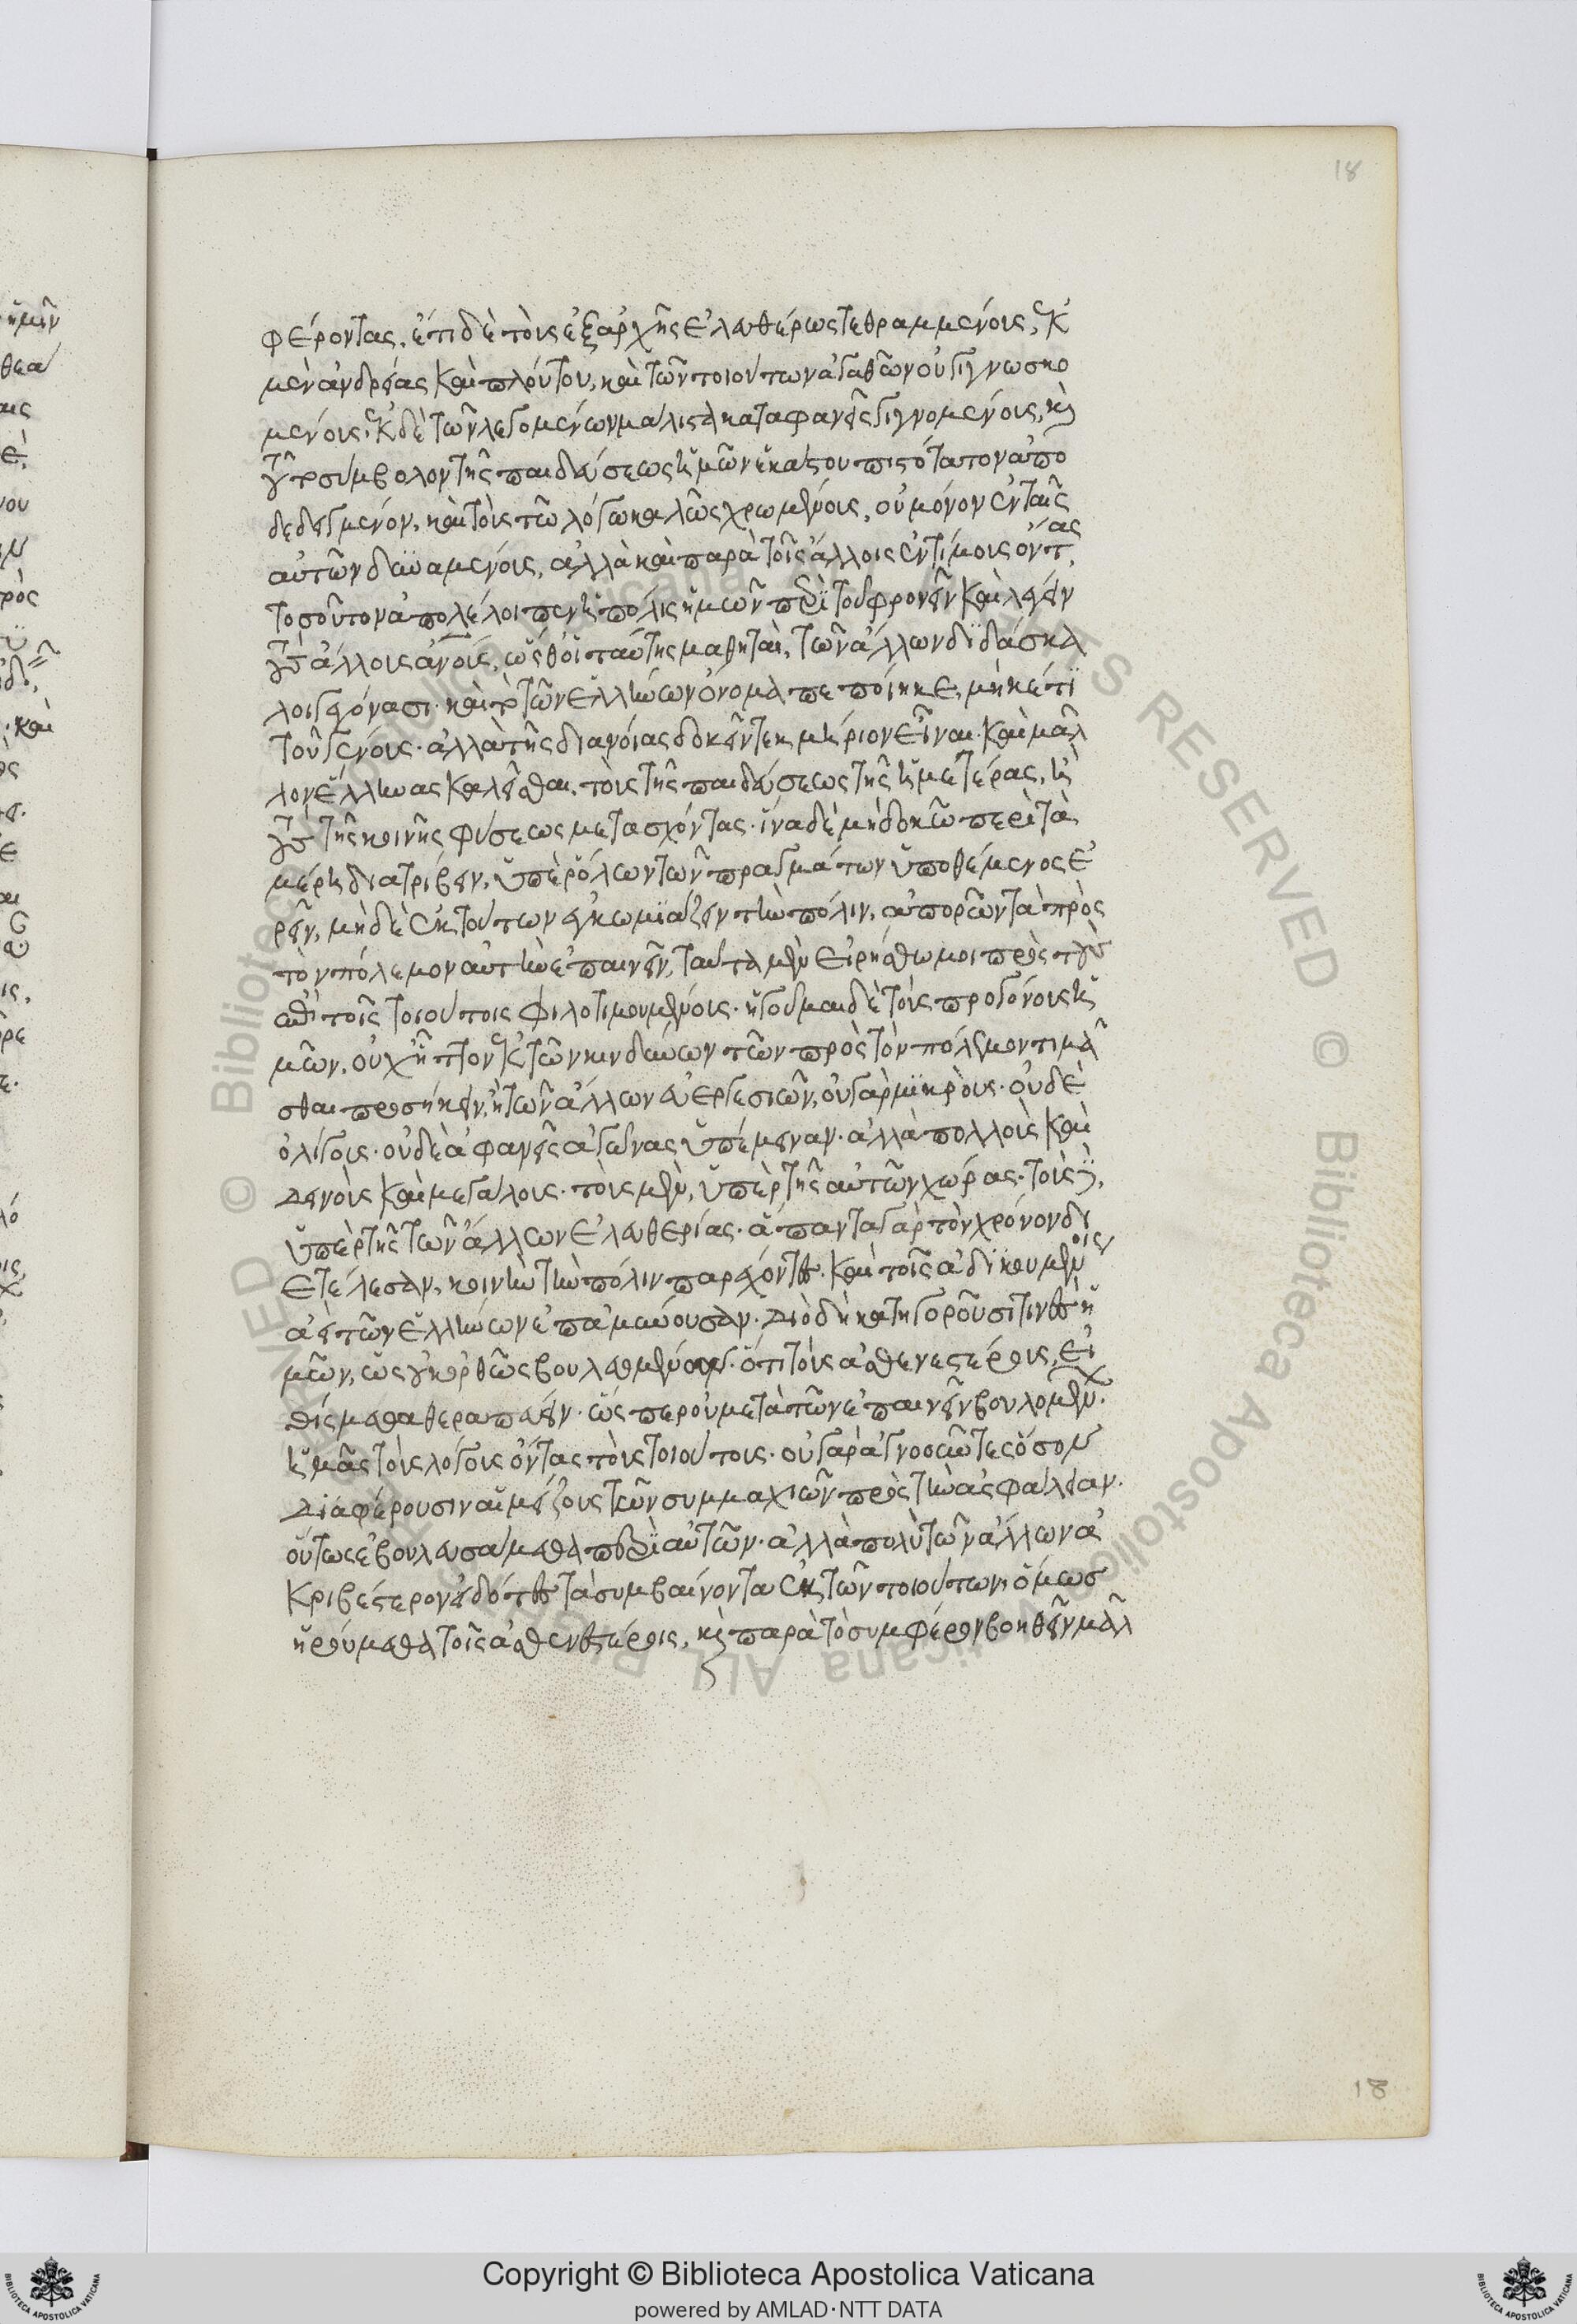 φέροντας. ἔτι δὲ τοὺς ἐξ ἀρχῆς ἐλευθέρως τεθραμμένους, ἐκ
μὲν ἀνδρείας καὶ πλούτου, καὶ τῶν τοιούτων ἀγαθῶν οὐ γιγνωσκο
μένους, ἐκ δὲ τῶν λεγομένων μάλιστα καταφανεῖς γιγνομένους, καὶ
τοῦτο σύμβολον τῆς παιδεύσεως ἡμῶν ἑκάστου πιστότατον ἀπο
δεδειγμένον, καὶ τοὺς τῶ λόγω καλῶς χρωμένους, οὐ μόνον ἐν ταῖς
αὐτῶν δυναμένους, ἀλλὰ καὶ παρὰ τοῖς ἄλλοις ἐντίμους ὄντας,
τοσοῦτον ἀπολέλοιπεν ἡ πόλις ἡμῶν περὶ τοῦ φρονεῖν καὶ λέγειν
τοὺς ἄλλους ἀνους, ὥσθ' οἱ ταύτης μαθηταὶ, τῶν ἄλλων διδάσκα
λοι γεγόνασι· καὶ τὸ τῶν ἑλλήνων ὄνομα πεποίηκε, μηκέτι
τοῦ γένους· ἀλλὰ τῆς διανοίας δοκεῖν τεκμήριον εἶναι· καὶ μᾶλ
λον ἕλληνας καλεῖσθαι, τοὺς τῆς παιδεύσεως τῆς ἡμετέρας, ἢ
τοὺς τῆς κοινῆς φύσεως μετασχόντας· ἵνα δὲ μὴ δοκῶ περὶ τὰ
μέρη διατρίβειν, ὑπὲρ ὅλων τῶν πραγμάτων ὑποθέμενος ἐ
ρεῖν, μηδὲ ἐκ τούτων ἐγκωμιάζειν τὴν πόλιν, ἀπορῶν τὰ πρὸς
τὸν πόλεμον αὐτὴν ἐπαινεῖν, ταῦτα μὲν εἰρήσθω μοι πρὸς τοὺς
ἐπὶ τοῖς τοιούτοις φιλοτιμουμένους· ἡγοῦμαι δὲ τοῖς προγόνοις ἡ
μῶν, οὐχ ἧττον ἐκ τῶν κινδύνων τῶν πρὸς τὸν πόλεμον τιμᾶ
σθαι προσήκειν, ἢ τῶν ἄλλων εὐεργεσιῶν, οὐ γὰρ μικροὺς· οὐδὲ
ὀλίγους· οὐδὲ ἀφανεῖς ἀγῶνας ὑπέμειναν· ἀλλὰ πολλοὺς καὶ
δεινοὺς καὶ μεγάλους· τοὺς μὲν, ὑπὲρ τῆς αὐτῶν χώρας· τοὺς δὲ,
ὑπὲρ τῆς τῶν ἄλλων ἐλευθερίας· ἅπαντα γὰρ τὸν χρόνον δι
ετέλεσαν, κοινὴν τὴν πόλιν παρέχοντες· καὶ τοῖς ἀδικουμένοις
ἀεὶ τῶν ἑλλήνων ἐπαμύνουσαν· διὸ δὴ κατηγοροῦσί τινες ἡ
μῶν, ὡς οὐκ ὀρθῶς βουλευομένων· ὅτι τοὺς ἀσθενεστέρους, εἰ
θίσμεθα θεραπεύειν· ὥσπερ οὐ μετὰ τῶν ἐπαινεῖν βουλομένων
ἡμᾶς τοὺς λόγους ὄντας τοὺς τοιούτους· οὐ γὰρ ἀγνοοῦντες ὅσον
διαφέρουσιν αἱ μείζους τῶν συμμαχιῶν πρὸς τὴν ἀσφάλειαν·
οὕτως ἐβουλευσάμεθα περὶ αὐτῶν· ἀλλὰ πολὺ τῶν ἄλλων ἀ
κριβέστερον εἰδότες τὰ συμβαίνοντα ἐκ τῶν τοιούτων, ὅμως
ἡρούμεθα τοῖς ἀσθενεστέροις, καὶ παρὰ τὸ συμφέρον βοηθεῖν μᾶλ
18
18
Copyright © Biblioteca Apostolica Vaticana
powered by AMLAD·NTT DATA